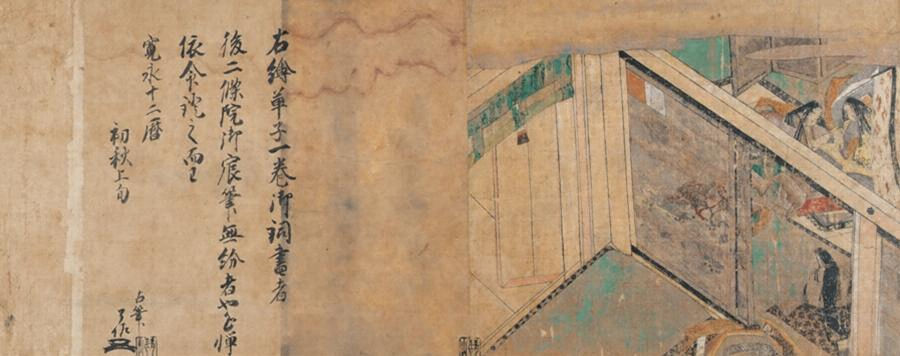 右繪草子一卷御詞書者
後二條院御宸筆無紛者也不憚
依命證之而已
寛永十二曆
初秋上旬
古筆
了佐